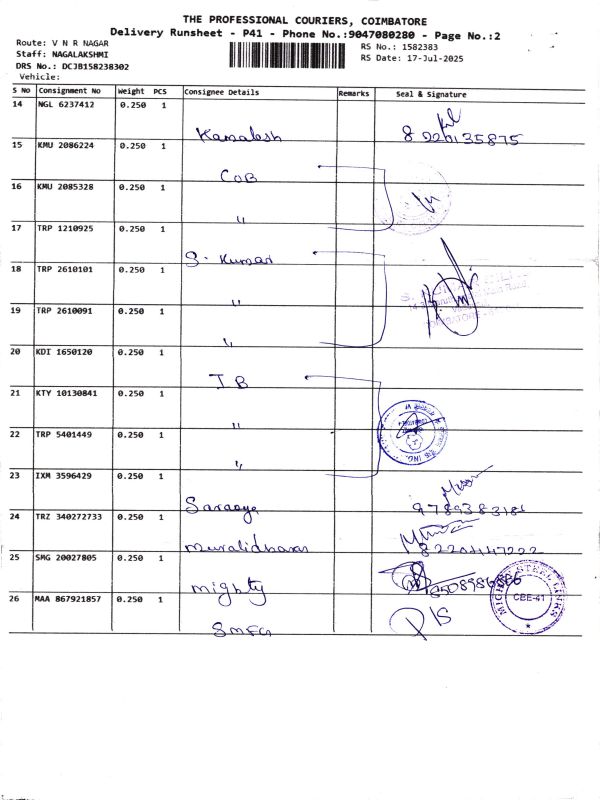 THE PROFESSIONAL COURIERS, COIMBATORE
Delivery Runsheet - P41 - Phone No.:9047080280 - Page No.:2
Route: V N R NAGAR
Staff: NAGALAKSHMI
DRS No.: DCJB158238302
Vehicle:
RS No.: 1582383
RS Date: 17-Jul-2025
S No Consignment No Weight PCS Consignee Details Remarks Seal & Signature
14 NGL 6237412 0.250 1
Kamalesh
15 KMU 2086224 0.250 1
COB
16 KMU 2085328 0.250 1
"
17 TRP 1210925 0.250 1
S. Kumar
18 TRP 2610101 0.250 1
"
19 TRP 2610091 0.250 1
"
20 KDI 1650120 0.250 1
I B
21 KTY 10130841 0.250 1
"
22 TRP 5401449 0.250 1
"
23 IXM 3596429 0.250 1
24 TRZ 340272733 0.250 1
Muralidharan
25 SMG 20027805 0.250 1
Mighty
MIGHTY STEEL LINKS
CBE-41
26 MAA 867921857 0.250 1